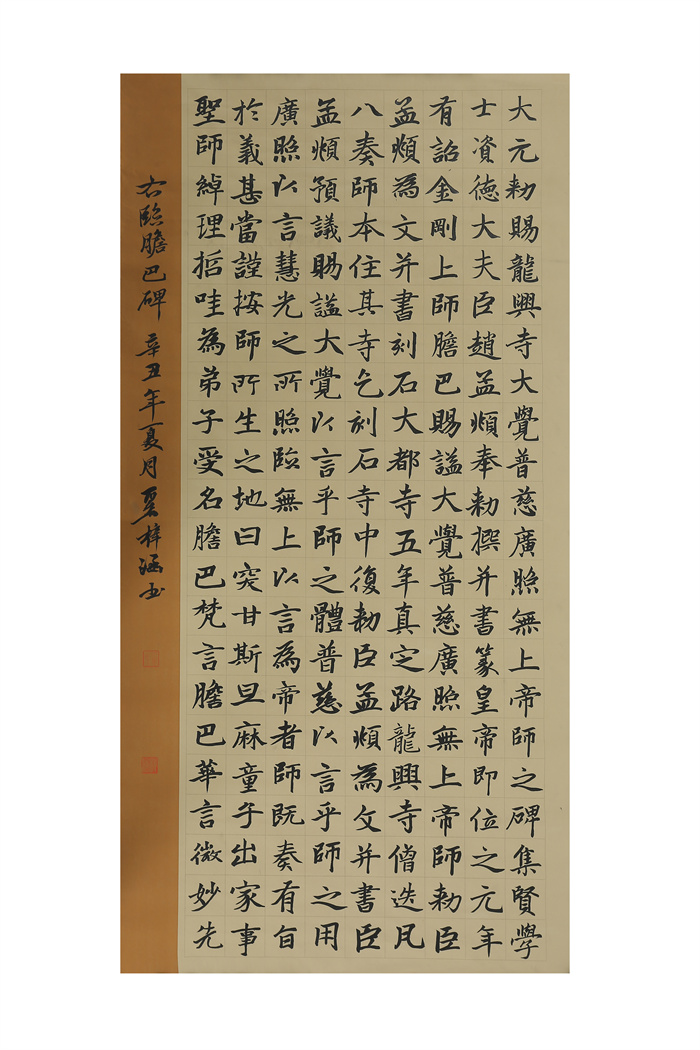 大元勅賜龍興寺大覺普慈廣照無上帝師之碑集賢學
士資德大夫臣趙孟頫奉勅撰并書篆皇帝即位之元年
有詔金剛上師膽巴賜謚大覺普慈廣照無上帝師勅臣
孟頫為文并書刻石大都寺五年真定路龍興寺僧迭凡
八奏師本住其寺乞刻石寺中復勅臣孟頫為文并書臣
孟頫預議賜謚大覺以言乎師之體普慈以言乎師之用
廣照以言慧光之所照臨無上以言為帝者師既奏有旨
於義甚當謹按師所生之地曰突甘斯旦麻童子出家事
聖師綽理哲哇為弟子受名膽巴梵言膽巴華言微妙先
右臨膽巴碑 辛丑年夏月梓涵书